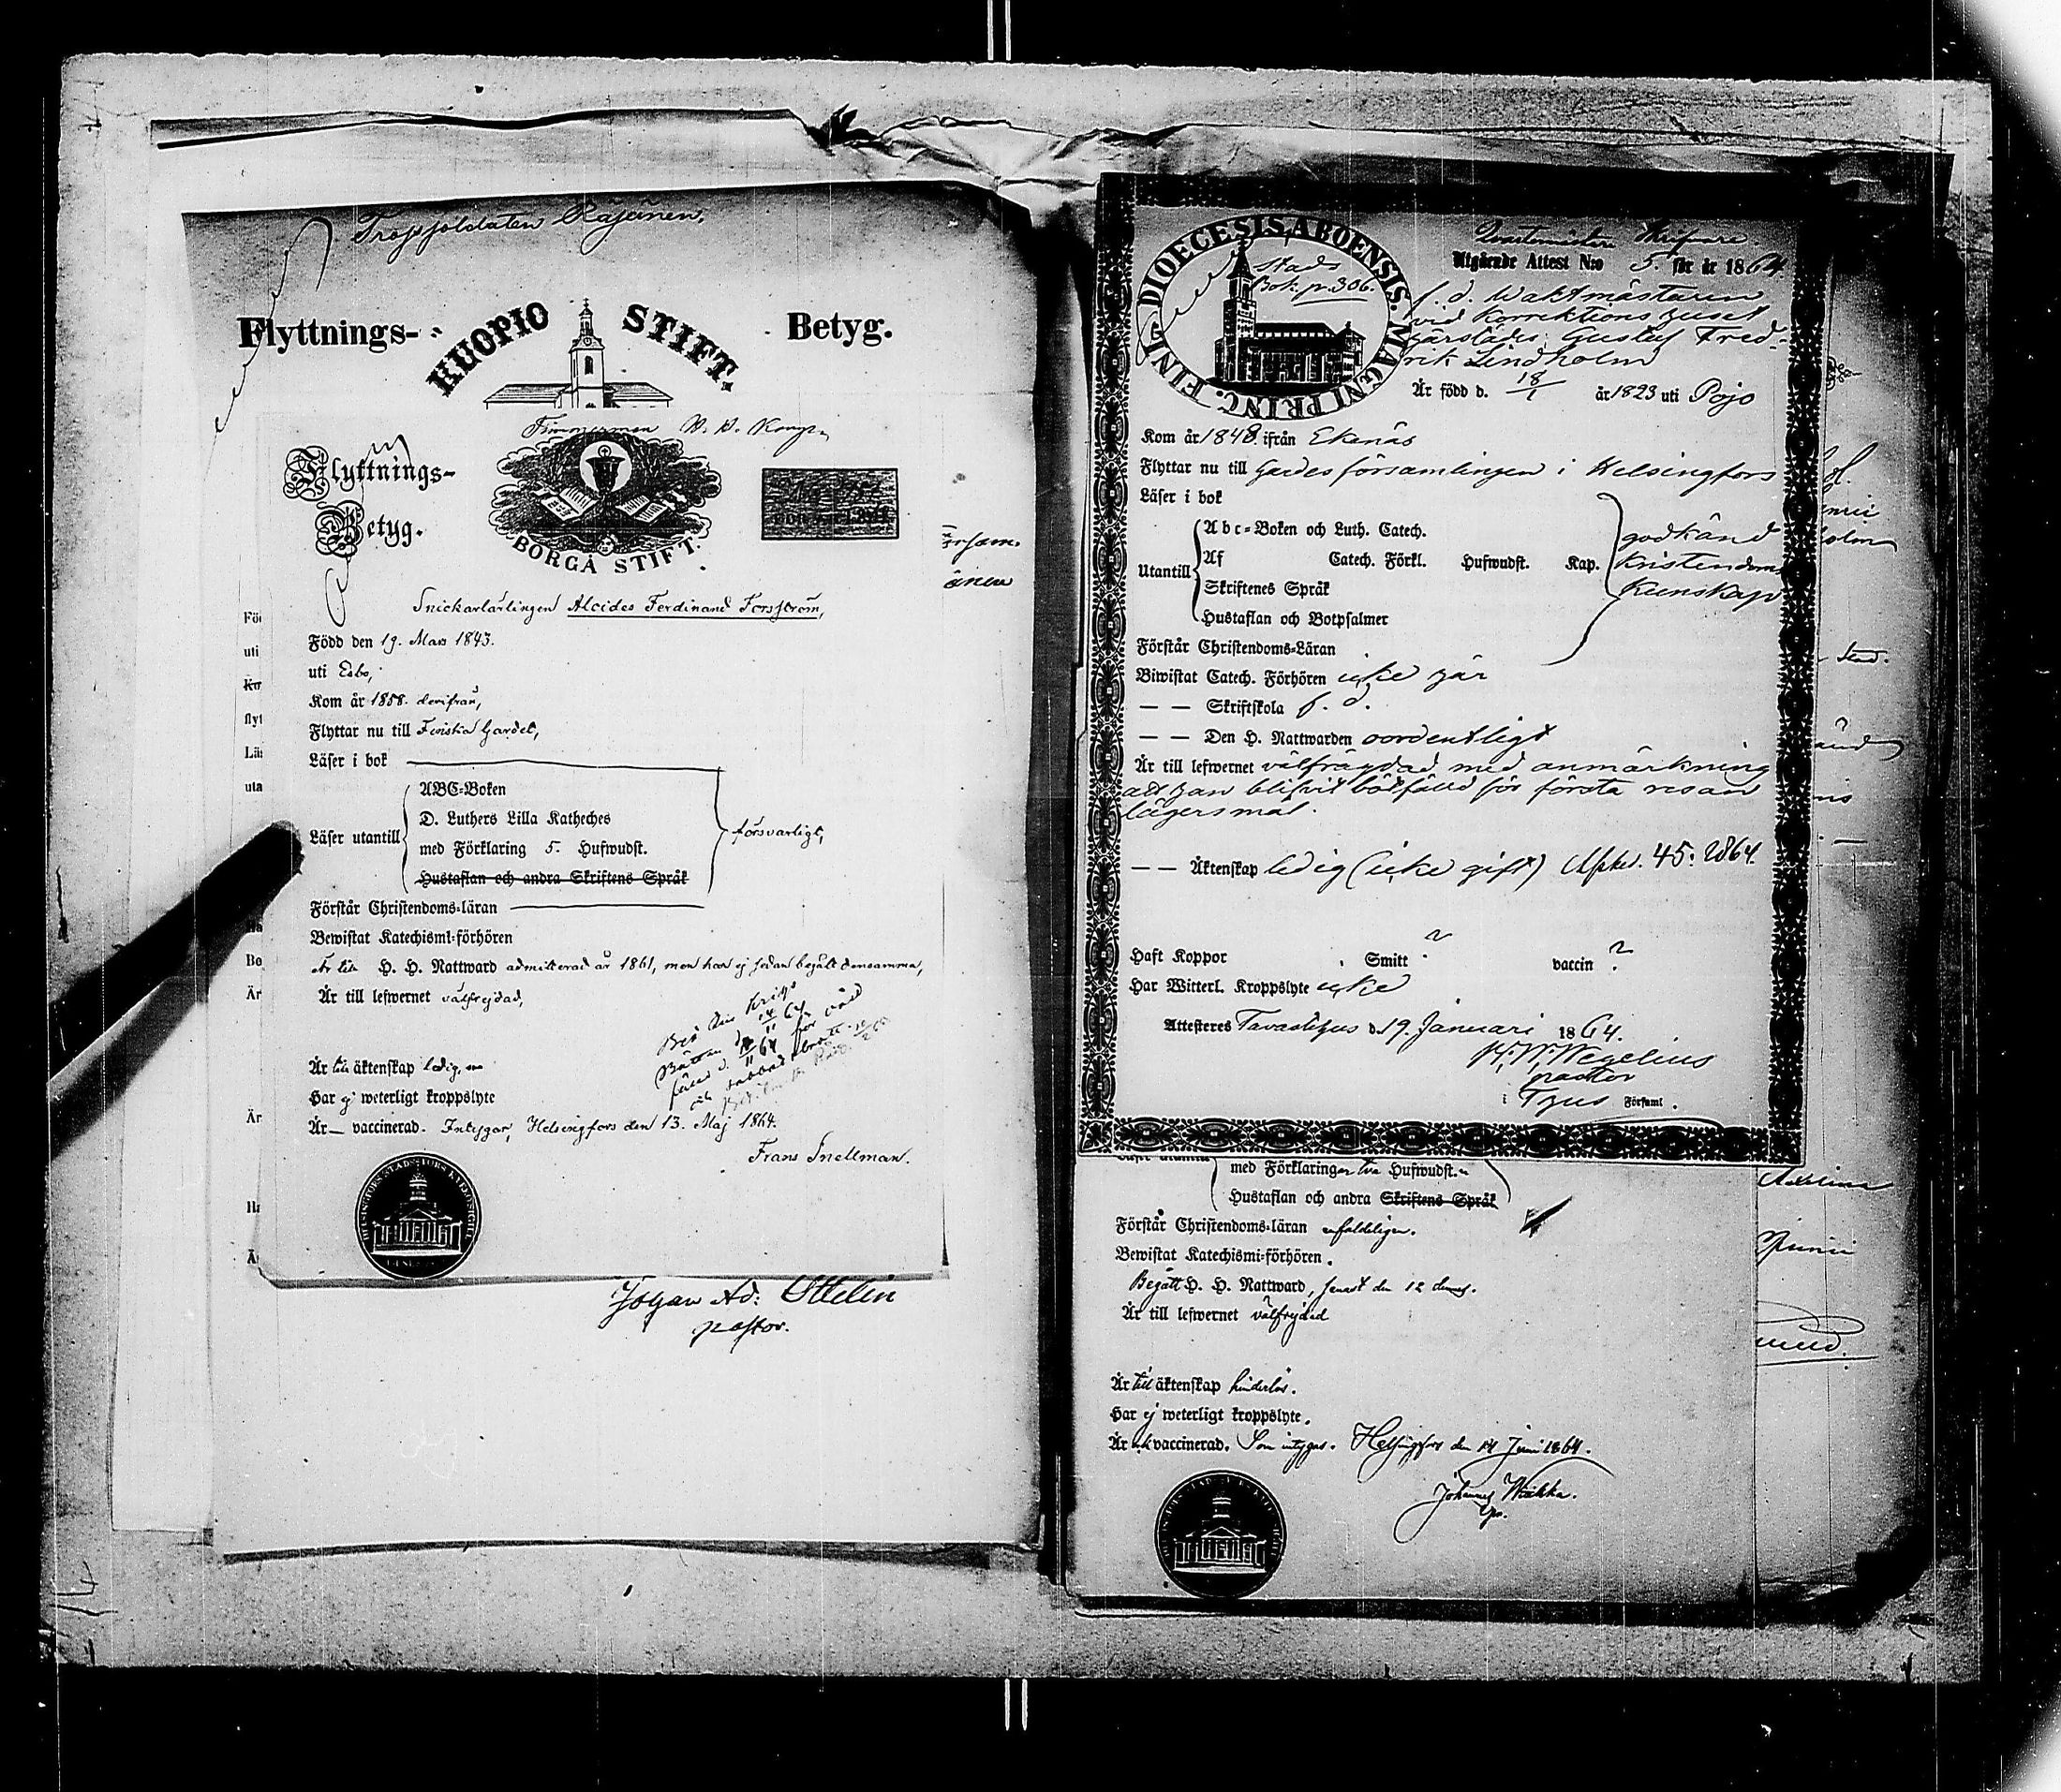 Trossoldaten Räjänen,
Flyttnings- KUOPIO STIFT. Betyg.
Timmerman
Flyttnings-
Betyg.
BORGÅ STIFT.
Snickarlärlingen Alcides Ferdinand Forsström,
Född den 19. Mars 1843.
uti Esbo,
Kom år 1858. derifrån,
Flyttar nu till Finska Gardet,
Läser i bok
Läser utantill
ABC-Boken
D. Luthers Lilla Katheches
med Förklaring 5. Hufwudst.
Hustaflan och andra Skriftens Språk
försvarligt,
Förstår Christendoms-läran
Bewistat Katechismi-förhören
Är till H. H. Nattward admitterad år 1861, men har ej sedan begått densamma,
Är till lefwernet välfrejdad,
Är till äktenskap ledig,
Har ej weterligt kroppslyte
Är vaccinerad. Intygar, Helsingfors den 13. Maj 1864.
Frans Snellman.
Johan Ad: Ottelin
pastor.
DIOECESIS ABOENSIS. MAGNI PRINC. FINL.
Stads
Bok p. 306.
Utgående Attest N:o 5. för år 1864
f. d. Waktmästaren
vid Korrektionshuset
härstädes Gustaf Fred-
rik Lindholm
Är född d. 18/1 år 1823 uti Pojo
Kom år 1848. ifrån Ekenäs
Flyttar nu till Gardesförsamlingen i Helsingfors
Läser i bok
Utantill
Abc-Boken och Luth. Catech.
Af Catech. Förkl. Hufwudst. Kap.
Skriftenes Språk
Hustaflan och Botpsalmer
godkänd
Kristendoms
Kunskap
Förstår Christendoms-Läran
Biwistat Catech. Förhören icke här
— — Skriftskola f. d.
— — Den H. Nattwarden oordentligt
Är till lefwernet välfrägdad med anmärkning
att han blifvit bötfälld för första resan
lägersmål.
— — Äktenskap ledig (icke gift) 45: 1864.
Haft Koppor . Smitt ? vaccin ?
Har Witterl. Kroppslyte icke
Attesteres Tavastehus d. 19. Januari 1864.
Wegelius
pastor
i Thus Församl.
med Förklaringar två Hufwudst.
Hustaflan och andra Skriftens Språk
Förstår Christendoms-läran enfaldeligen.
Bewistat Katechismi-förhören.
Begått H. H. Nattward, senast den 12 dennes.
Är till lefwernet välfrejdad
Är till äktenskap hinderlös.
Har ej weterligt kroppslyte.
Är vaccinerad. Som intygas. Helsingfors den 14 Juni 1864.
Johannes